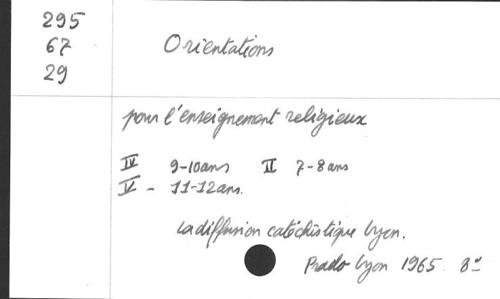 295
67
29
Orientations
pour l'enseignement religieux
IV 9-10ans II 7-8ans
V - 11-12ans.
La diffusion catéchistique Lyon.
Prado Lyon 1965. 8°